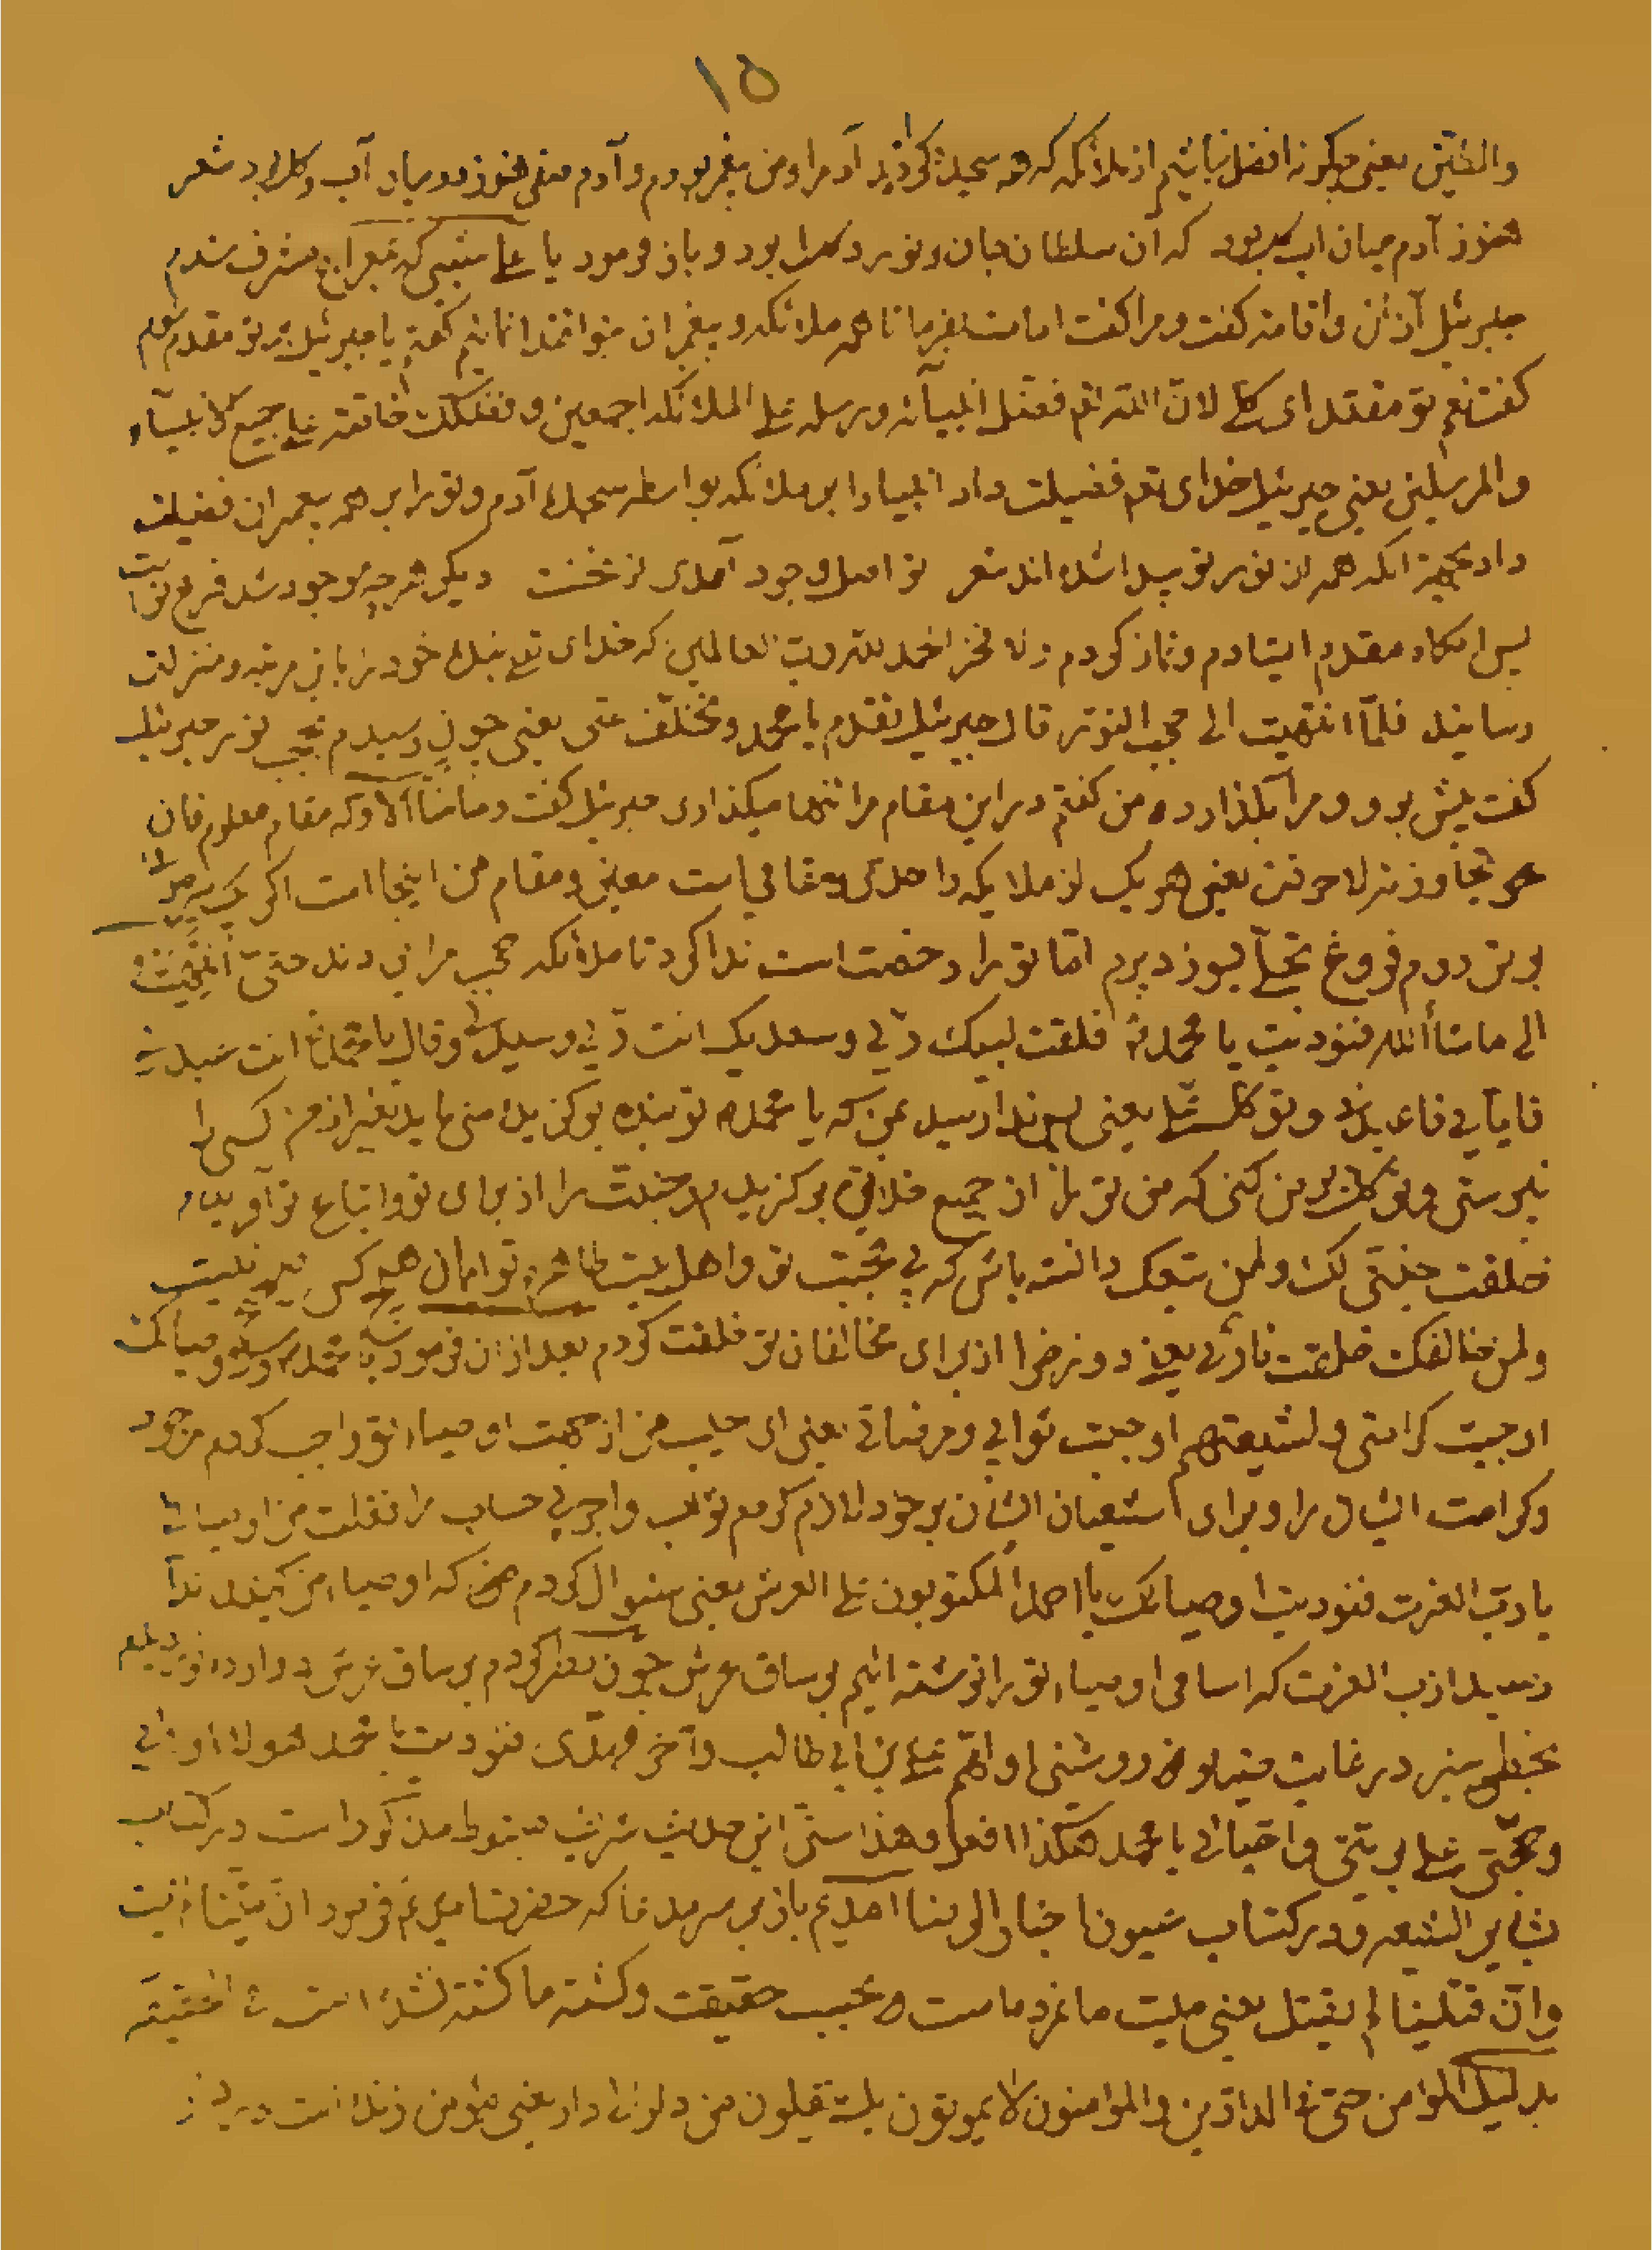 ۱۵
والطین یعنی چکونه افضل نباشیم از ملائکه که همه سجده کردند آدم را و من پیغمبر بودم و آدم صفی هنوز در میان آب و کل بود شعر
هنوز آدم میان آب کل بود که آن سلطان جان و نور دلها بود و باز فرمود یا علی شبی که بمعراج مشرف شدم
جبرئیل آذان و اقامه کفت و مرا کفت امامت بفرما تا همه ملائکه و پیغمبران بتو اقتدا نمایند کفتم یا جبرئیل بر تو مقدم شوم
کفت نعم تو مقتدای کلی لان الله تعم فضل انبیائه و رسله علی الملائکه اجمعین و فضلک خاصة علی جمیع الانبیاء
والمرسلین یعنی جبرئیل خدای تعم فضیلت داد انبیا را بر ملائکه بواسطه سجدهٔ آدم و تو را بر همه پیغمبران فضیلت
داد بجهة آنکه همه از نور تو پیدا شده اند شعر تو اصل وجود آمدی از نخست دیکر هرچه موجود شد فرع تو است
پس آنکاه مقدم ایستادم و نماز کردم ولا فخر الحمد لله رب العالمین که خدای تع بندهٔ خود را باین مرتبه و منزلت
رسانید فلما انتهیت الی حجب النور قال جبرئیل تقدم یا محمد و تخلف عنی یعنی چون رسیدم بحجب نور جبرئیل
کفت پیش برو و مرا بکذار ده من کفتم در این مقام مرا تنها میکذاری جبرئیل کفت و ما منا الا وله مقام معلوم فان
تجاوزته لاحرقت یعنی هر یک از ملایکه را حدی و مقامی است معین و مقام من اینجا است اکر یک سر مو
برتر روم فروغ تجلی بسوزد پرم اما تو را رخصت است ندا کرد تا ملائکه حجب مرا بردند حتی انتهیت
الی ما شاء الله فنودیت یا محمد فقلت لبیک ربی وسعدیک انت ربی وسیدی وقال یا محمد انت عبدی
فایای فاعبد و توکل علی یعنی پس ندا رسید بمن که یا محمد تو بنده برکزیده منی باید بغیر از من کسی را
نپرستی و توکل بر من کنی که من تو را از جمیع خلایق برکزیدم و جنت را از برای تو و اتباع تو آفریدم
خلقت جنتی لک ولمن تبعک دانسته باش که بی محبت تو و اهل بیت طاهره تو ایمان هیچ کس نیست
ولمن خالفک خلقت ناری یعنی دوزخ را از برای مخالفان تو خلقت کردم بعد از آن فرمود یا محمد ولاوصیائک
اوجبت کرامتی ولشیعتهم اوجبت ثوابی ومرضاتی یعنی ای حبیب من از جهت اوصیاء تو واجب کردم بر خود
وکرامت ایشان را و برای شیعیان ایشان بر خود لازم کردم ثواب و اجر بی حساب را فقلت من اوصیائی
یا رب العزت فنودیت اوصیائک یا احمد المکتوبون علی العرش یعنی سئوال کردم که اوصیاء من کیند ندا
رسید از رب العزت که اسامی اوصیاء تو را نوشته ایم بر ساق عرش چون نظر کردم بر ساق عرش دوازده نور دیدم
بخطی سبز در غایت ضیا و روشنی اولهم علی بن ابی طالب و آخر مهدی فنودیت یا محمد هولاء اولیائی
وحجتی علی بریتی واحبائی یا محمد هکذا افعل وهذا سنتی این حدیث شریف مبسوط مذکور است در کتاب
بشایر الشیعه و در کتاب عیون اخبار الرضا آمدیم باز بر سر مدعا که حضرت امیر عم فرمود ان میتنا
وان قتلینا لم یقتل یعنی میت ما نمرده است بحسب حقیقت و کشته ما کشته نشده است فی الحقیقه
المؤمن حی فی الدارین والمؤمنون لا یموتون بل ینقلون من دار الی دار یعنی مؤمن زنده است در